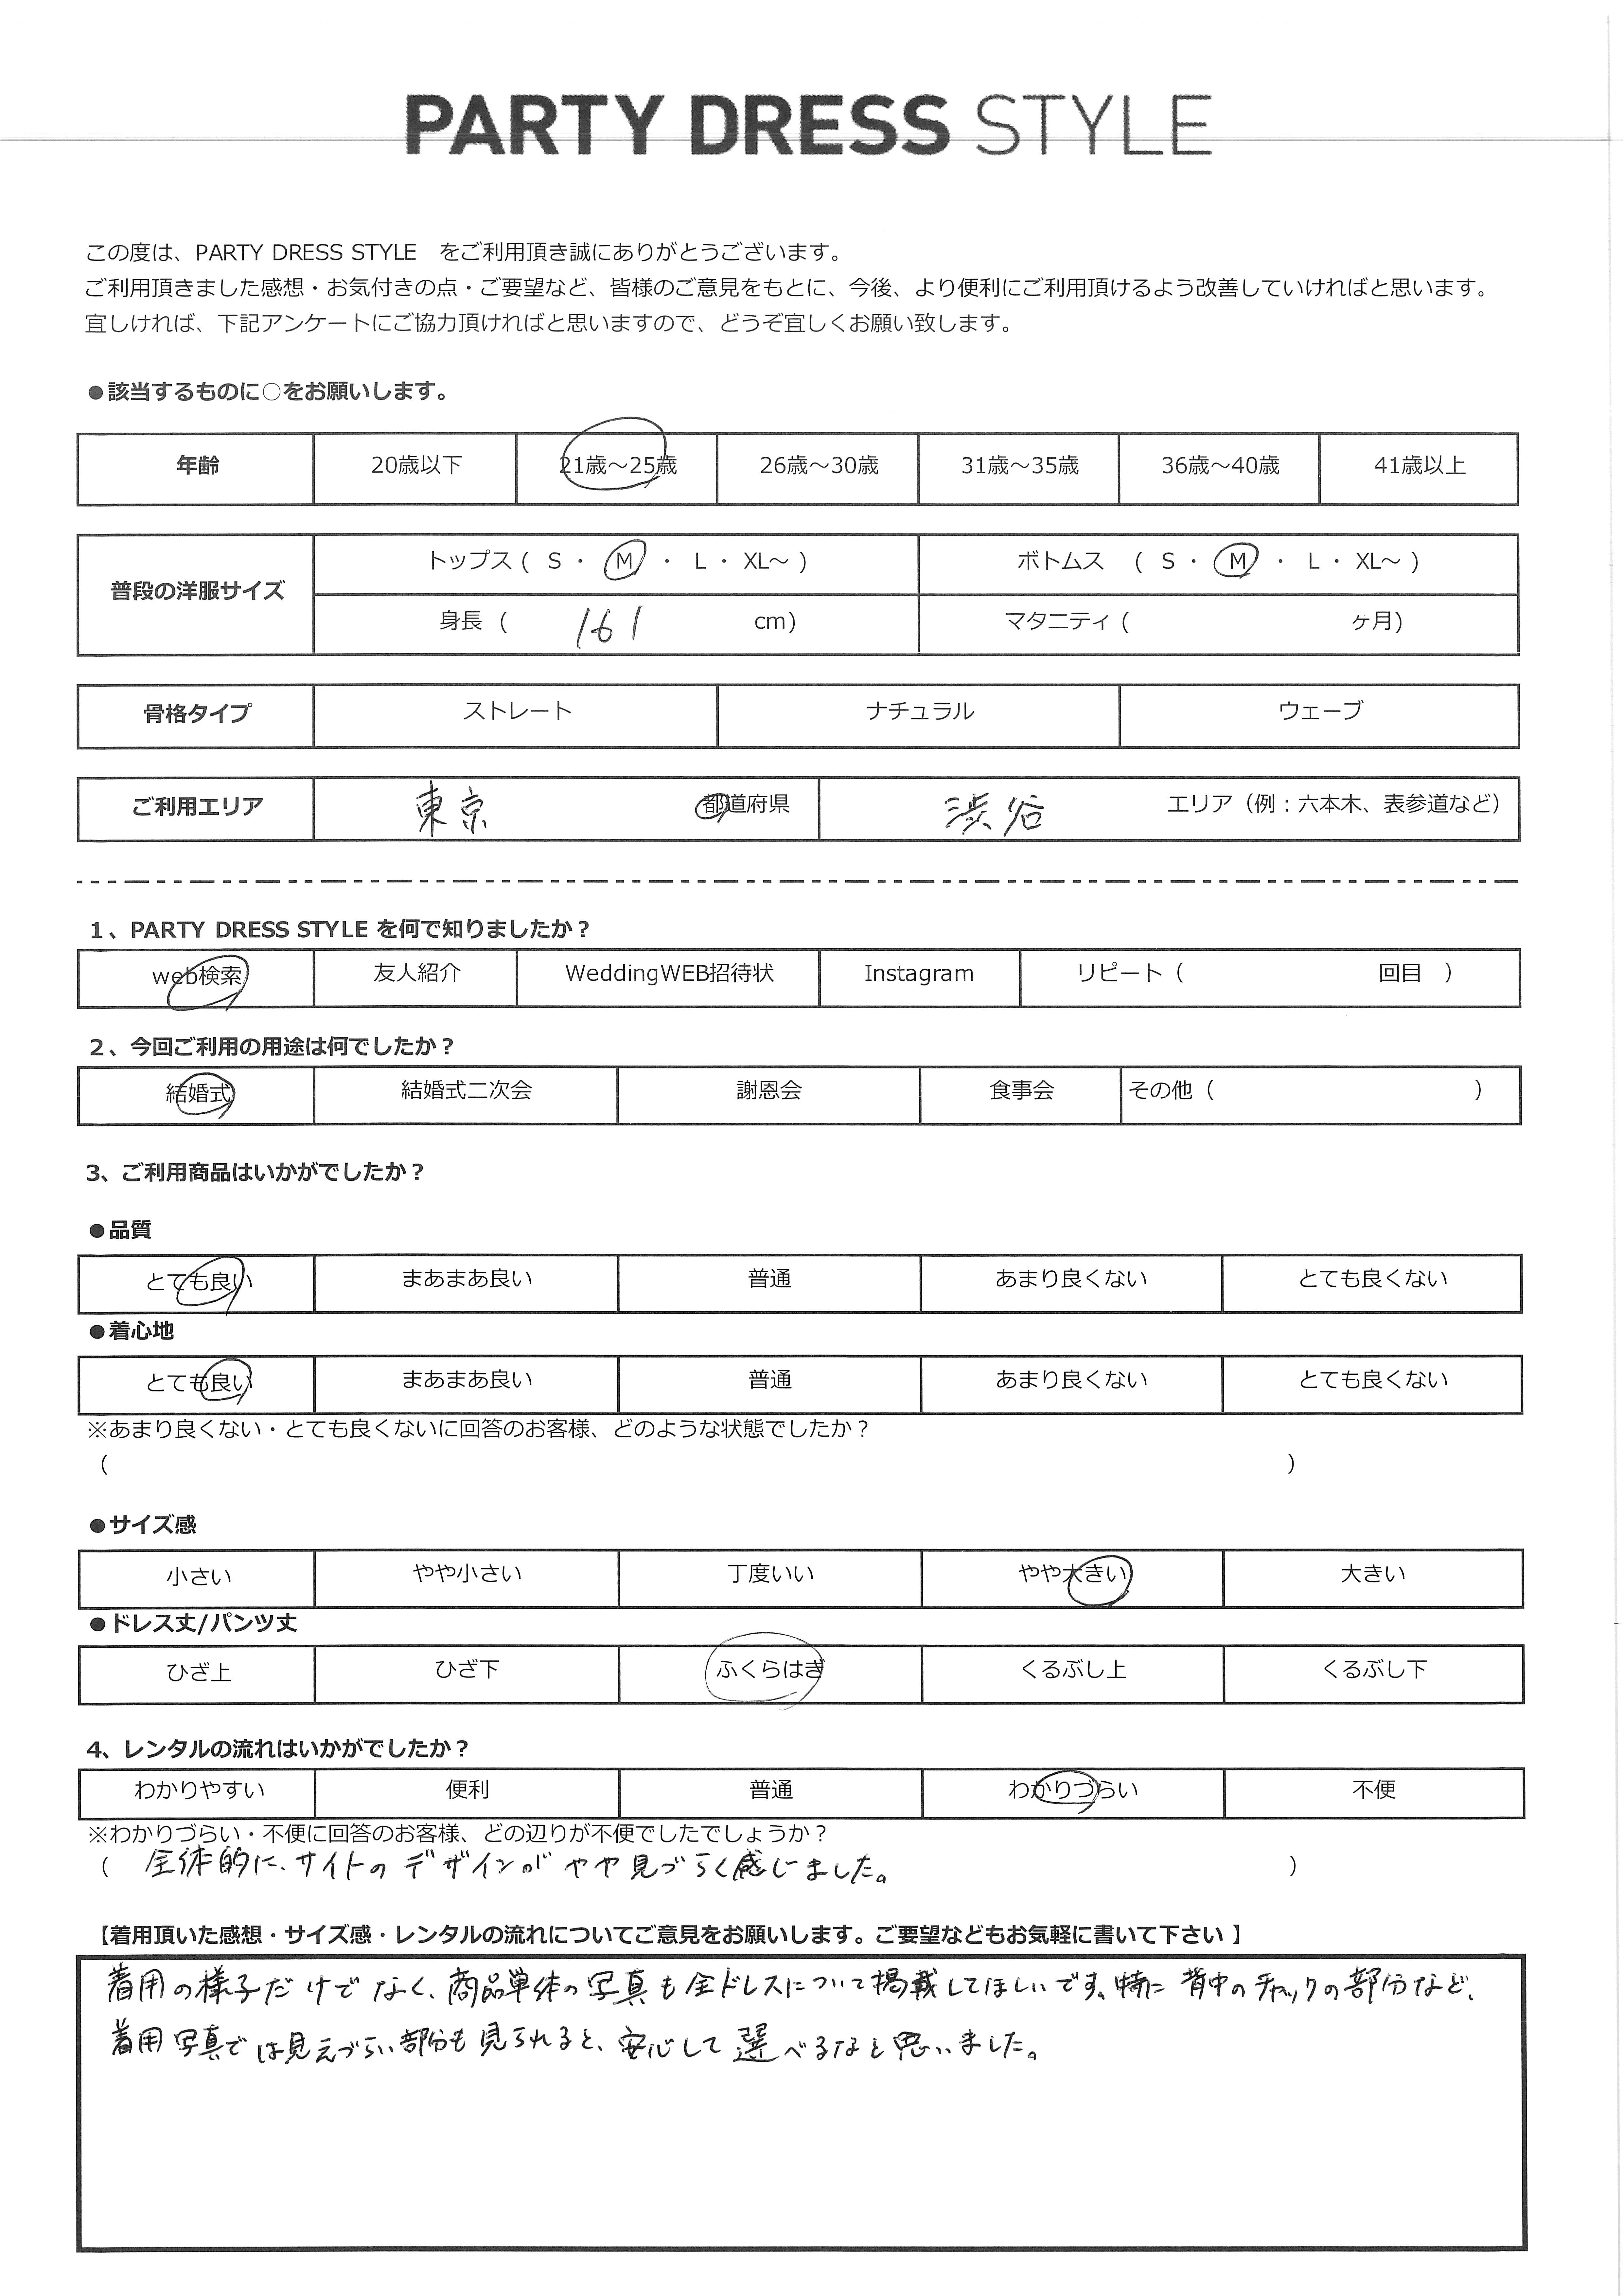 PARTY DRESS STYLE
この度は、PARTY DRESS STYLE をご利用頂き誠にありがとうございます。
ご利用頂きました感想・お気付きの点・ご要望など、皆様のご意見をもとに、今後、より便利にご利用頂けるよう改善していければと思います。
宜しければ、下記アンケートにご協力頂ければと思いますので、どうぞ宜しくお願い致します。
●該当するものに○をお願いします。
年齢 20歳以下 21歳～25歳 26歳～30歳 31歳～35歳 36歳～40歳 41歳以上
普段の洋服サイズ トップス ( S ・ M ・ L ・ XL～ ) ボトムス ( S ・ M ・ L ・ XL～ )
身長 ( 161 cm) マタニティ ( ヶ月)
骨格タイプ ストレート ナチュラル ウェーブ
ご利用エリア 東京 都道府県 渋谷 エリア（例：六本木、表参道など）
1、PARTY DRESS STYLE を何で知りましたか？
web検索 友人紹介 WeddingWEB招待状 Instagram リピート（ 回目 ）
2、今回ご利用の用途は何でしたか？
結婚式 結婚式二次会 謝恩会 食事会 その他（ ）
3、ご利用商品はいかがでしたか？
●品質
とても良い まあまあ良い 普通 あまり良くない とても良くない
●着心地
とても良い まあまあ良い 普通 あまり良くない とても良くない
※あまり良くない・とても良くないに回答のお客様、どのような状態でしたか？
（ ）
●サイズ感
小さい やや小さい 丁度いい やや大きい 大きい
●ドレス丈/パンツ丈
ひざ上 ひざ下 ふくらはぎ くるぶし上 くるぶし下
4、レンタルの流れはいかがでしたか？
わかりやすい 便利 普通 わかりづらい 不便
※わかりづらい・不便に回答のお客様、どの辺りが不便でしたでしょうか？
（ 全体的に、サイトのデザインがやや見づらく感じました。 ）
【着用頂いた感想・サイズ感・レンタルの流れについてご意見をお願いします。ご要望などもお気軽に書いて下さい 】
着用の様子だけでなく、商品単体の写真も全ドレスについて掲載してほしいです。特に背中のチャックの部分など、
着用写真では見えづらい部分も見られると、安心して選べるなと思いました。